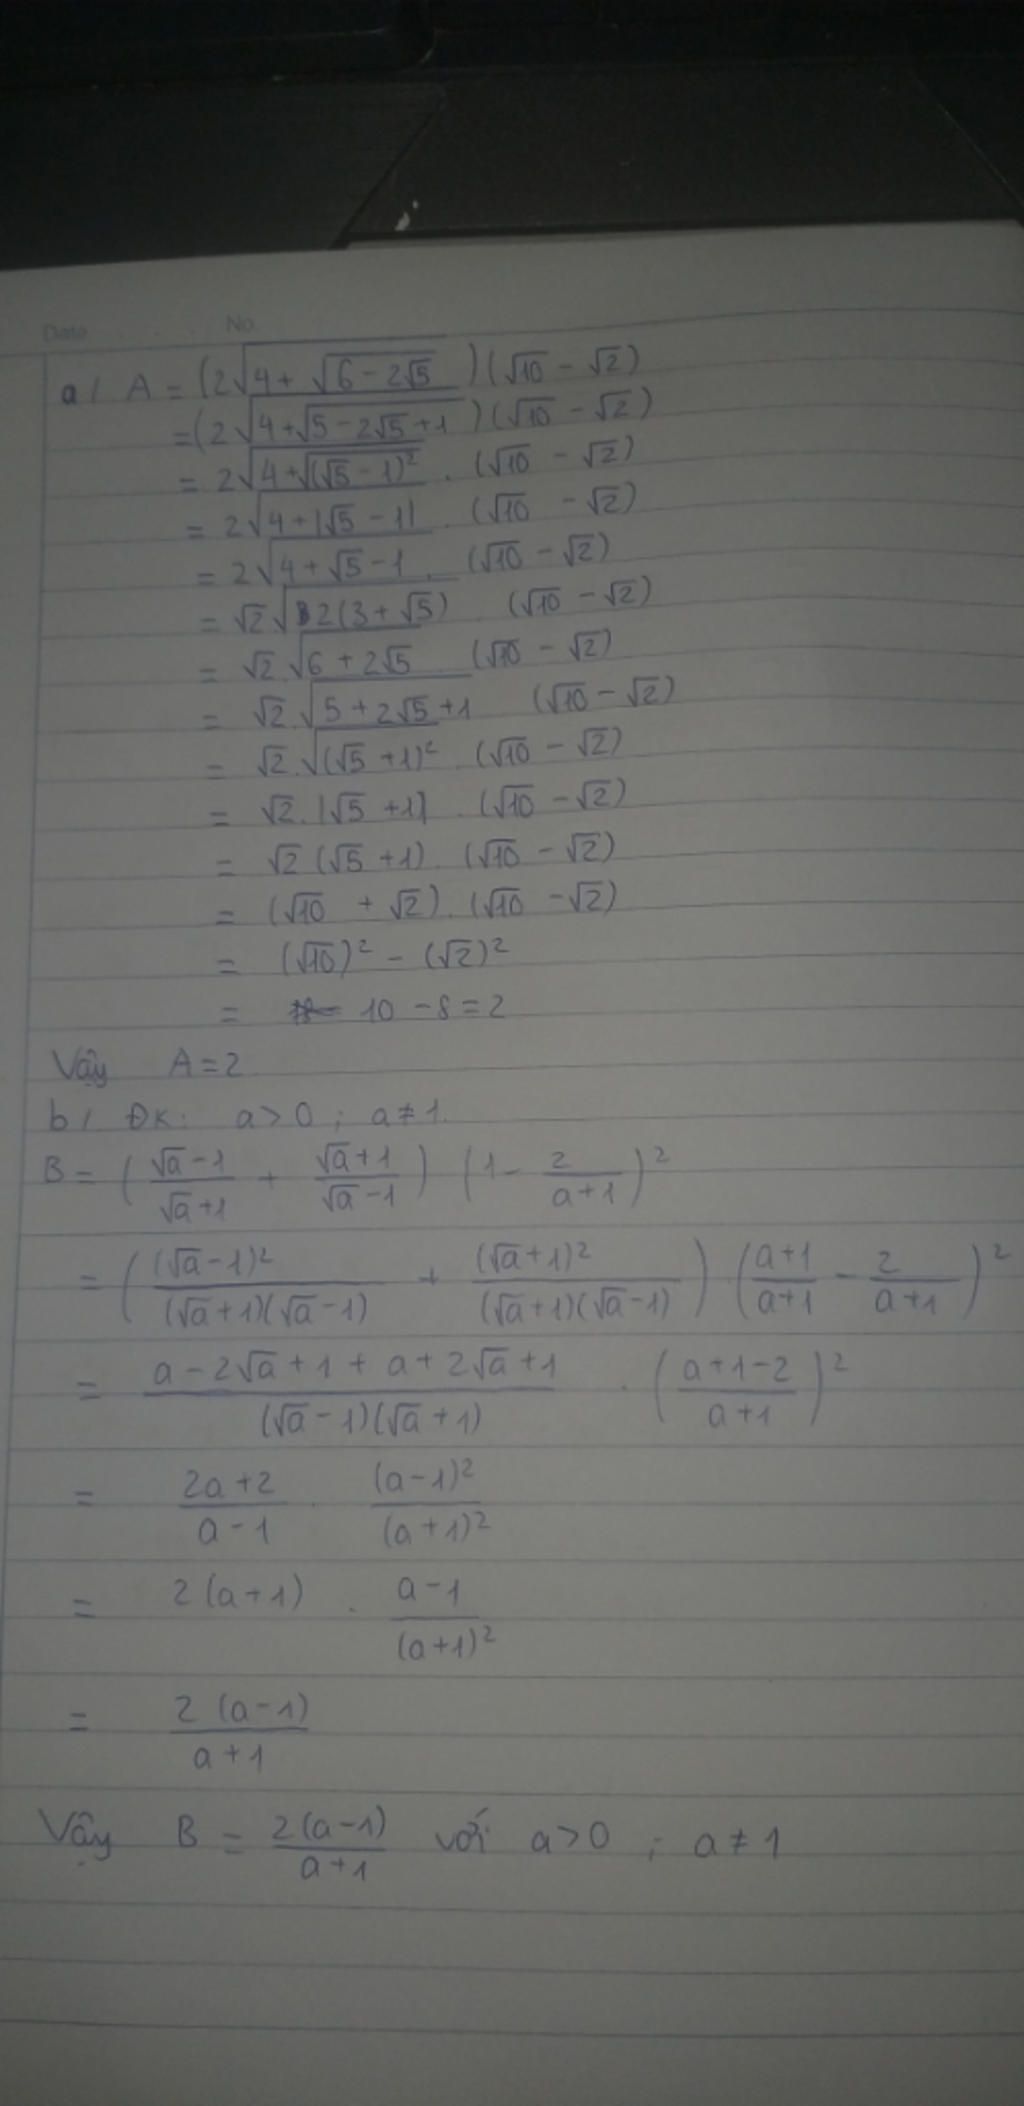 Date No.
a/ A = (2√(4 + √(6 - 2√5))) (√10 - √2)
= (2√(4 + √(5 - 2√5 + 1))) (√10 - √2)
= 2√(4 + √((√5 - 1)²)) . (√10 - √2)
= 2√(4 + |√5 - 1|) . (√10 - √2)
= 2√(4 + √5 - 1) . (√10 - √2)
= √2 √(2(3 + √5)) . (√10 - √2)
= √2 . √(6 + 2√5) (√10 - √2)
= √2 . √(5 + 2√5 + 1) (√10 - √2)
= √2 . √((√5 + 1)²) . (√10 - √2)
= √2 . |√5 + 1| . (√10 - √2)
= √2 (√5 + 1) . (√10 - √2)
= (√10 + √2) . (√10 - √2)
= (√10)² - (√2)²
= 10 - 8 = 2
Vậy A = 2
b/ ĐK: a > 0 ; a ≠ 1.
B = ((√a - 1)/(√a + 1) + (√a + 1)/(√a - 1)) (1 - 2/(a + 1))²
= ((√a - 1)²/((√a + 1)(√a - 1)) + (√a + 1)²/((√a + 1)(√a - 1))) . ((a + 1)/(a + 1) - 2/(a + 1))²
= (a - 2√a + 1 + a + 2√a + 1)/((√a - 1)(√a + 1)) . ((a + 1 - 2)/(a + 1))²
= (2a + 2)/(a - 1) . (a - 1)²/(a + 1)²
= 2(a + 1) . (a - 1)/(a + 1)²
= 2(a - 1)/(a + 1)
Vậy B = 2(a - 1)/(a + 1) với a > 0 ; a ≠ 1